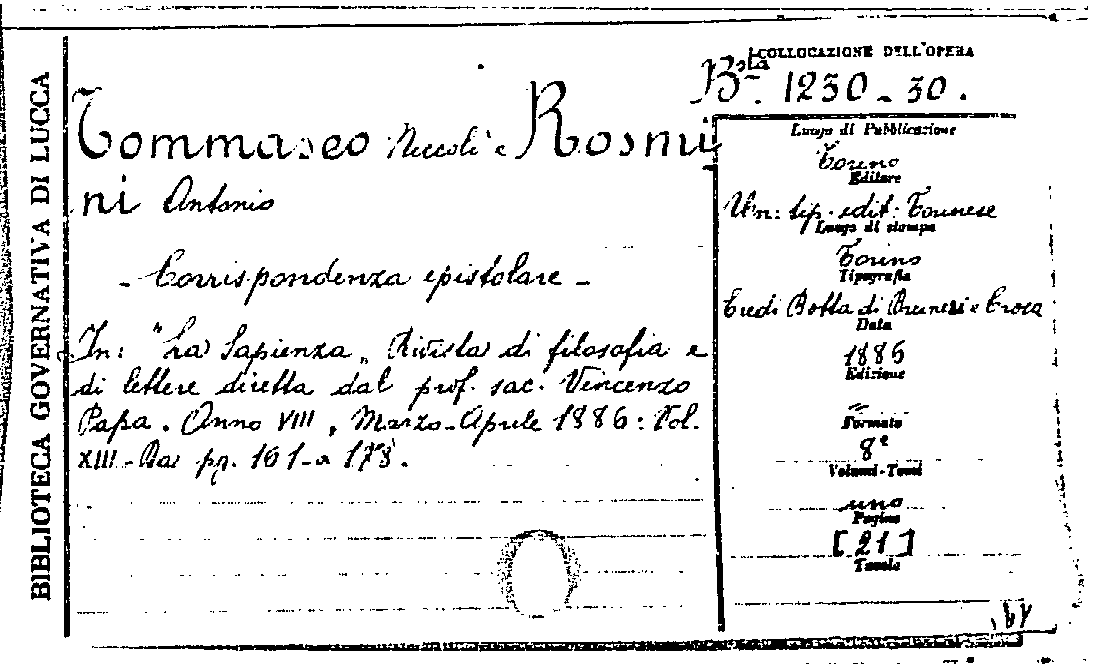 BIBLIOTECA GOVERNATIVA DI LUCCA
COLLOCAZIONE DELL'OPERA
Bsta 1230-30.
Tommaseo Niccolò e Rosmi
ni Antonio
- Corrispondenza epistolare -
In: "La Sapienza" Rivista di filosofia e
di lettere diretta dal prof. sac. Vincenzo
Papa. Anno VIII, Marzo-Aprile 1886: Vol.
XIII - Da pg. 161 a 178.
Luogo di Pubblicazione
Torino
Editore
Un: tip. edit: Torinese
Luogo di stampa
Torino
Tipografia
Eredi Botta di Brunesi e Crosa
Data
1886
Edizione
Formato
8°
Volumi-Tomi
uno
Pagine
[21]
Tavole